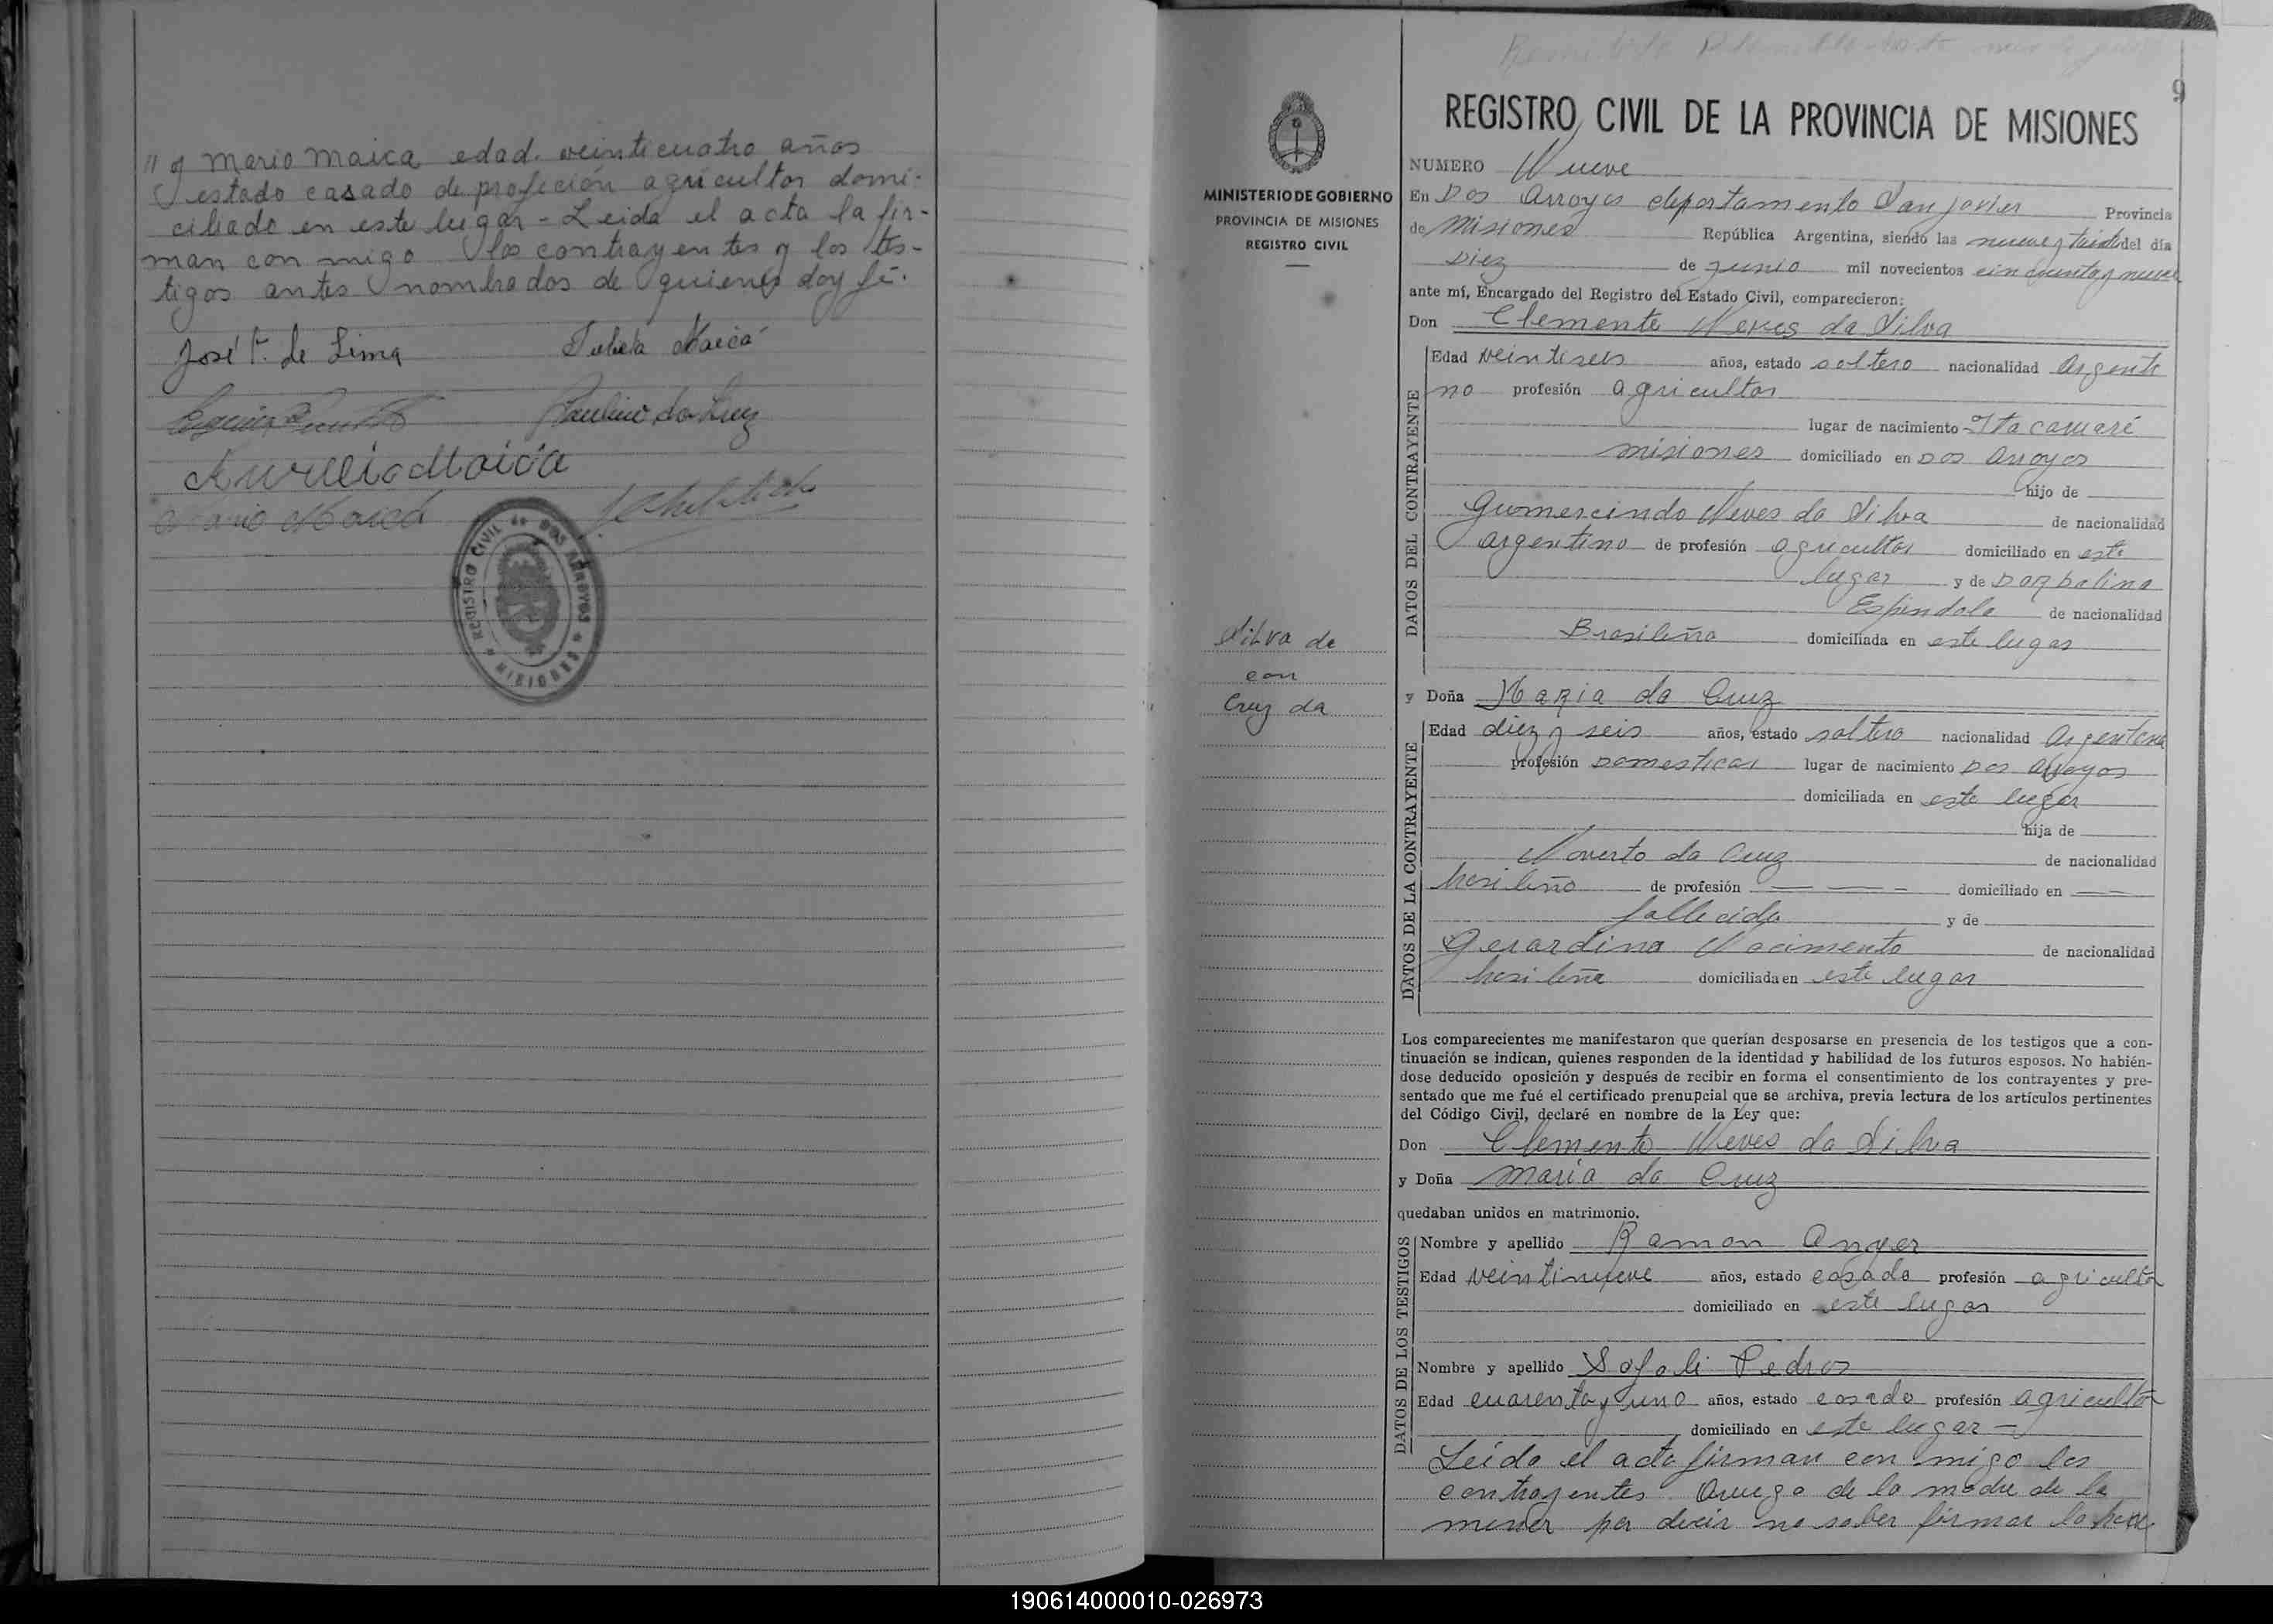 " y Mario Maica edad. veinticuatro años
estado casado de profeción agricultor domi-
ciliado en este lugar - Leida el acta la fir-
man con migo los contrayentes y los tes-
tigos antes nombrados de quienes doy fé.
José F. de Lima
Julieta Maica
Paulino da Luz
Aurelio Maica
Mario Maica
REGISTRO CIVIL de DOS ARROYOS
MISIONES
9
REGISTRO CIVIL DE LA PROVINCIA DE MISIONES
MINISTERIO DE GOBIERNO
PROVINCIA DE MISIONES
REGISTRO CIVIL
NUMERO Nueve
En Dos Arroyos departamento San Javier Provincia
de Misiones República Argentina, siendo las nueve y treinta del día
Diez de Junio mil novecientos cincuenta y nueve
ante mí, Encargado del Registro del Estado Civil, comparecieron:
Don Clemente Neves da Silva
DATOS DEL CONTRAYENTE
Edad veintiseis años, estado soltero nacionalidad Argenti
no profesión agricultor
lugar de nacimiento Itacaruaré
misiones domiciliado en Dos Arroyos
hijo de
Gumercindo Neves da Silva de nacionalidad
argentino de profesión agricultor domiciliado en este
lugar y de Dorbalina
Espindola de nacionalidad
Brasileña domiciliada en este lugar
Silva de
con
Cruz da
y Doña Maria da Cruz
DATOS DE LA CONTRAYENTE
Edad diez y seis años, estado soltera nacionalidad Argentina
profesión Domesticas lugar de nacimiento Dos Arroyos
domiciliada en este lugar
hija de
Noverto da Cruz de nacionalidad
brasileño de profesión — — - domiciliado en — —
fallecido y de
Gerardina Nacimento de nacionalidad
brasileña domiciliada en este lugar
Los comparecientes me manifestaron que querían desposarse en presencia de los testigos que a con-
tinuación se indican, quienes responden de la identidad y habilidad de los futuros esposos. No habién-
dose deducido oposición y después de recibir en forma el consentimiento de los contrayentes y pre-
sentado que me fué el certificado prenupcial que se archiva, previa lectura de los artículos pertinentes
del Código Civil, declaré en nombre de la Ley que:
Don Clemente Neves da Silva
y Doña Maria da Cruz
quedaban unidos en matrimonio.
DATOS DE LOS TESTIGOS
Nombre y apellido Ramon Anger
Edad veintinueve años, estado casado profesión agricultor
domiciliado en este lugar
Nombre y apellido Sofoli Pedros
Edad cuarenta y uno años, estado casado profesión agricultor
domiciliado en este lugar -
Leída el acta firman con migo los
contrayentes Aruego de la madre de la
menor por decir no saber firmar lo hace
190614000010-026973